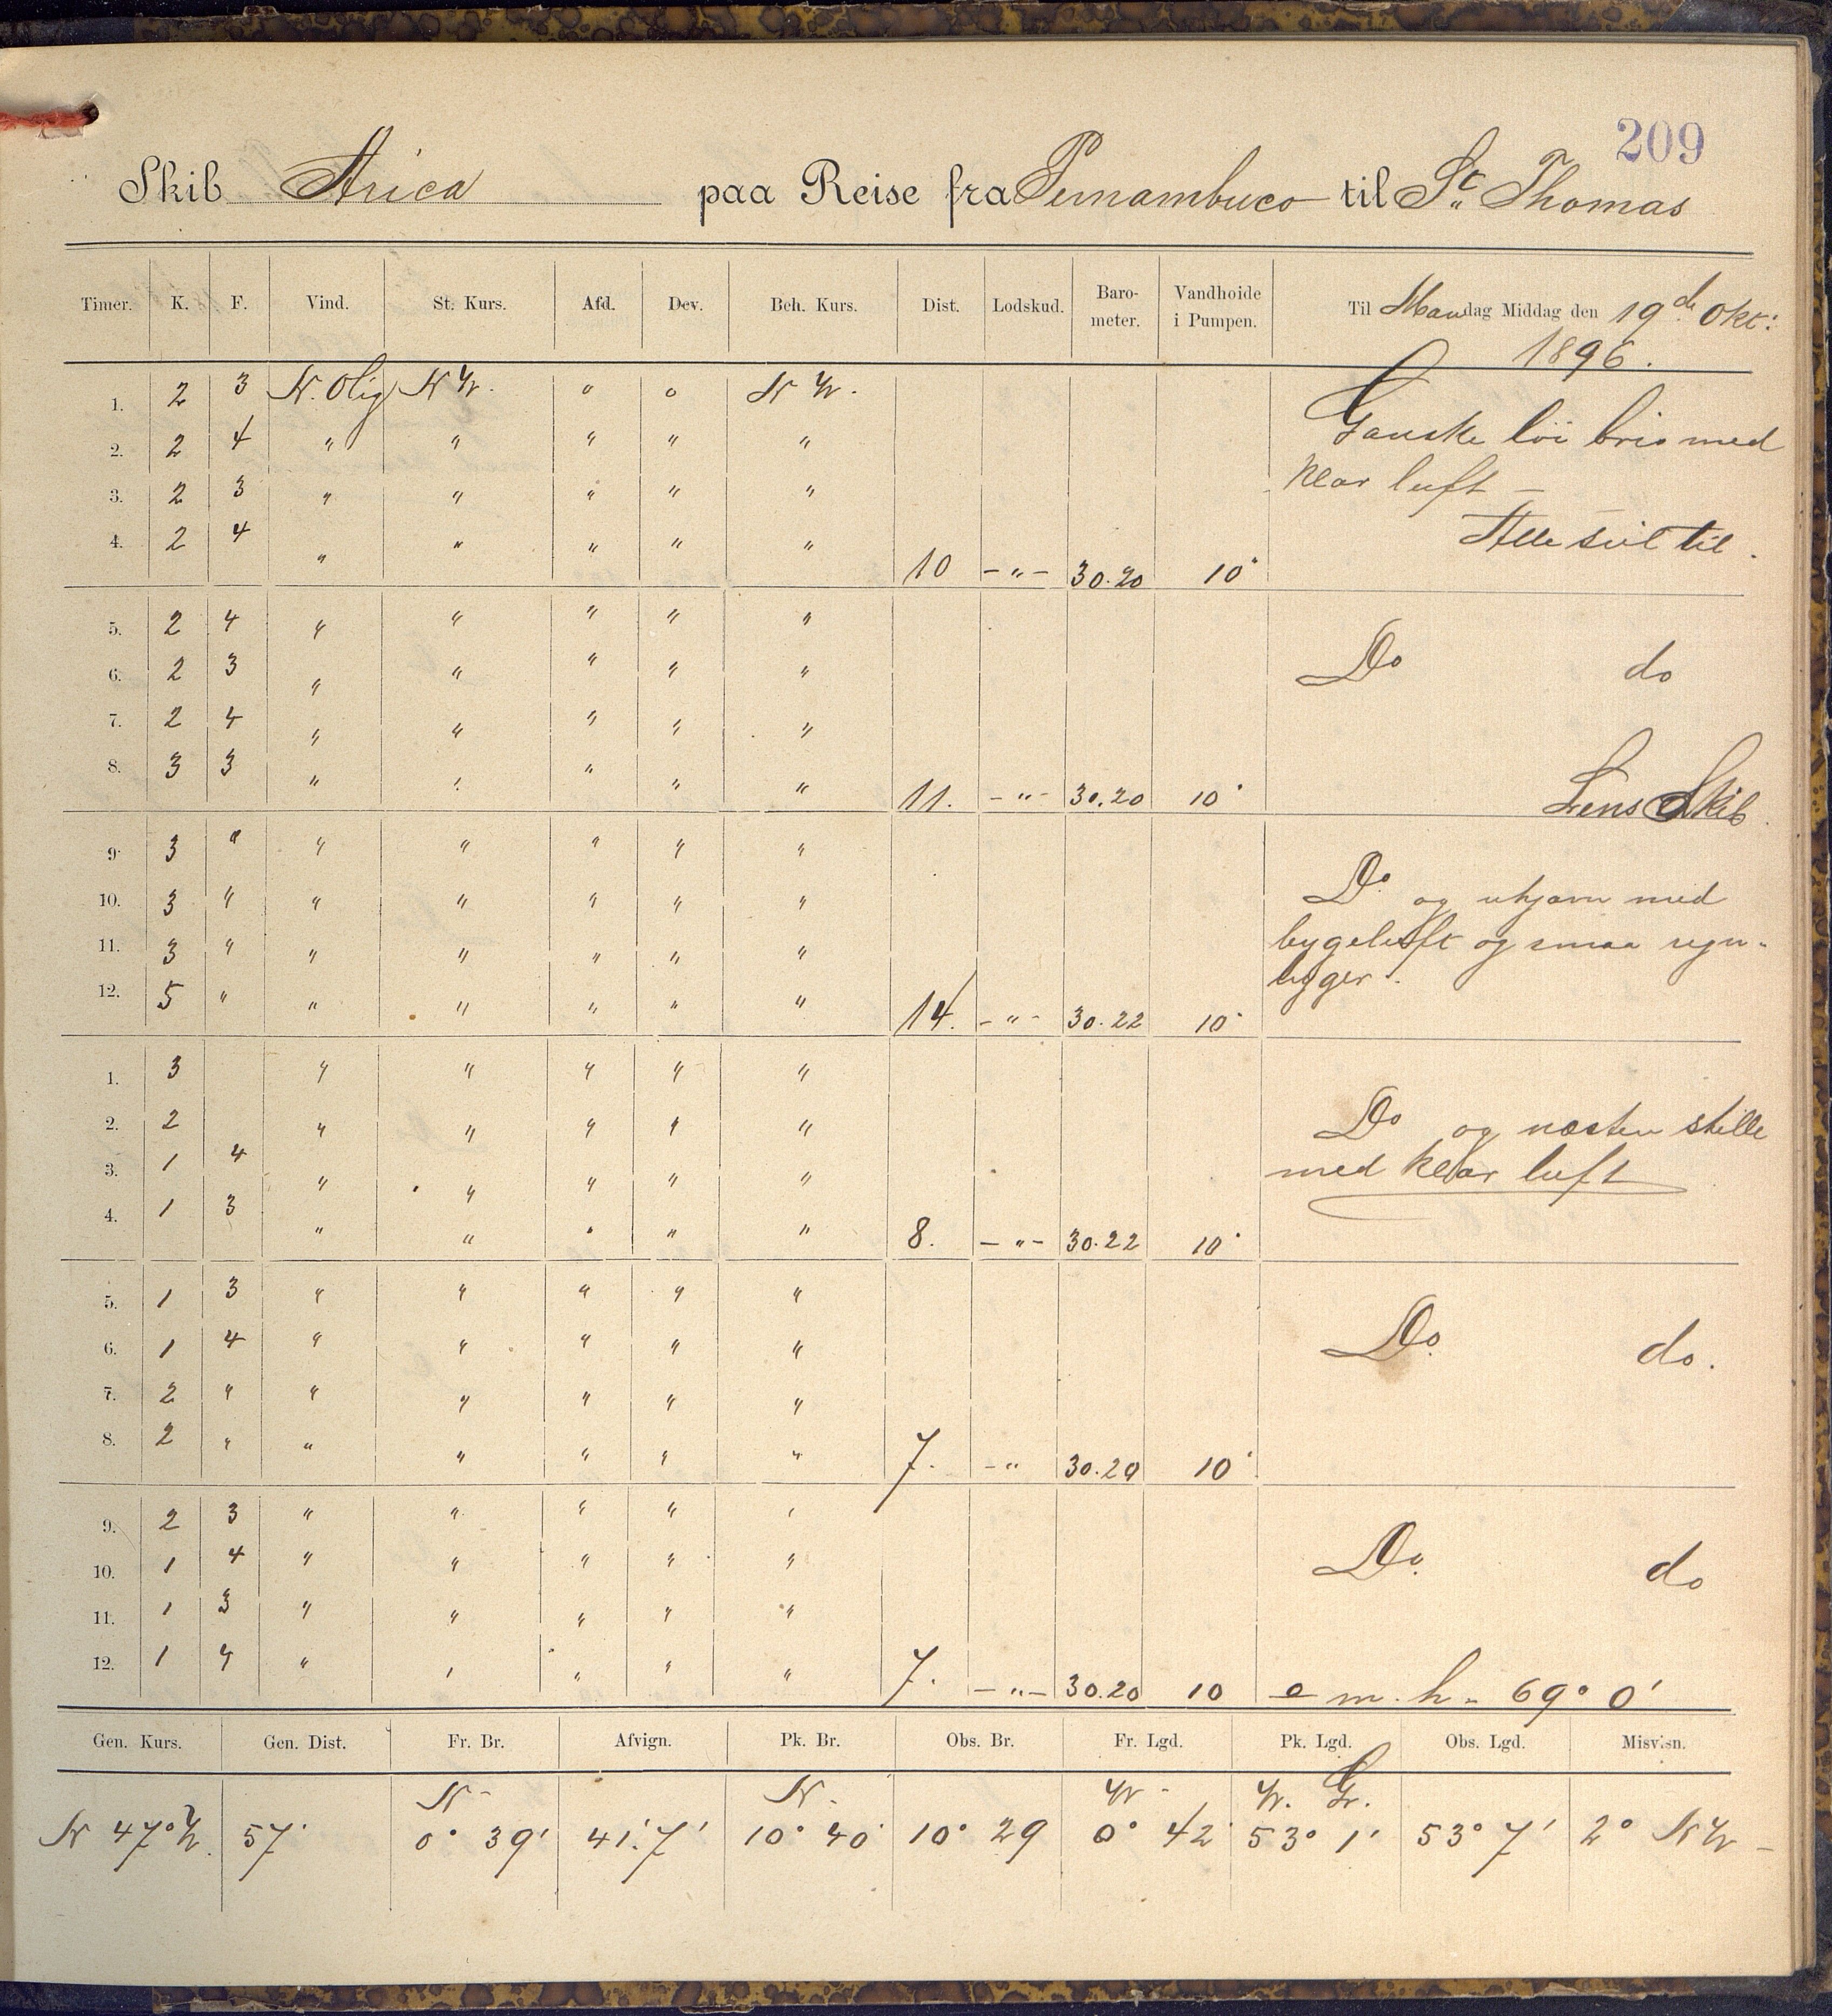 209
Skib Arica paa Reise fra Pernambuco til St. Thomas
Timer. K. F. Vind. St. Kurs. Afd. Dev. Beh. Kurs. Dist. Lodskud. Barometer. Vandhoide i Pumpen. Til Mandag Middag den 19de Okt: 1896.
1. 2 3 N. Olig N W. " o N W. Ganske löi bris med
2. 2 4 " " " " "
3. 2 3 " " " " " klar luft –
4. 2 4 " " " " " 10 – " – 30.20 10" Alle seil til.
5. 2 4 " " " " "
6. 2 3 " " " " " Do do
7. 2 4 " " " " "
8. 3 3 " " " " " 11. – " – 30.20 10" Lens Skib.
9. 3 " " " " " "
10. 3 " " " " " " Do og ujævn med
11. 3 " " " " " " bygeluft og smaa regn-
12. 5 " " " " " " 14. – " – 30.22 10" byger.
1. 3 " " " " "
2. 2 " " " " " Do og næsten stille
3. 1 4 " " " " " med klar luft
4. 1 3 " " " " " 8. – " – 30.22 10"
5. 1 3 " " " " "
6. 1 4 " " " " " Do. do.
7. 2 " " " " " "
8. 2 " " " " " " 7. – " 30.20 10"
9. 2 3 " " " " "
10. 1 4 " " " " " Do. do
11. 1 3 " " " " "
12. 1 4 " " " " " 7. – " – 30.20 10 m. h. 69° 0'
Gen. Kurs. Gen. Dist. Fr. Br. Afvign. Pk. Br. Obs. Br. Fr. Lgd. Pk. Lgd. Obs. Lgd. Misvisn.
N - N. W - W. Gr.
N 47° W. 57' 0° 39' 41'.7' 10° 40' 10° 29 0° 42' 53° 1' 53° 7' 2° NW –